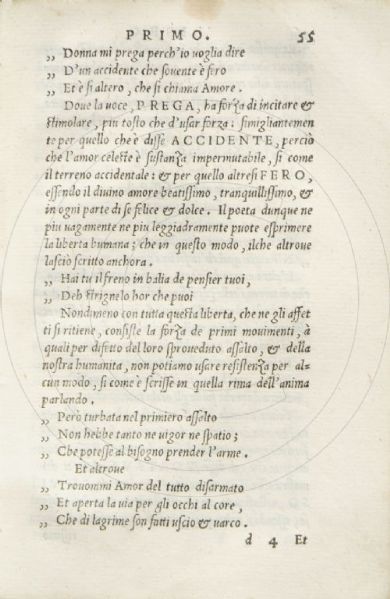 PRIMO. 55
,, Donna mi prega perch'io uoglia dire
,, D'un accidente che souente è fero
,, Et è si altero, che si chiama Amore.
Doue la uoce, PREGA, ha forza di incitare &
stimolare, piu tosto che d'usar forza: simigliantemen
te per quello che è disse ACCIDENTE, perciò
che l'amor celeste è sustanza impermutabile, si come
il terreno accidentale: & per quello altresi FERO,
essendo il diuino amore beatissimo, tranquillissimo, &
in ogni parte di se felice & dolce. Il poeta dunque ne
piu uagamente ne piu leggiadramente puote esprimere
la liberta humana; che in questo modo, ilche altroue
lasciò scritto anchora.
,, Hai tu il freno in balia de pensier tuoi,
,, Deh stringelo hor che puoi
Nondimeno con tutta questa liberta, che ne gli affet
ti si ritiene, consiste la forza de primi mouimenti, à
quali per difetto del loro sproueduto assalto, & della
nostra humanita, non potiamo usare resistenza per al-
cun modo, si come è scrisse in quella rima dell'anima
parlando.
,, Però turbata nel primiero assalto
,, Non hebbe tanto ne uigor ne spatio;
,, Che potesse al bisogno prender l'arme.
Et altroue
,, Trouommi Amor del tutto disarmato
,, Et aperta la uia per gli occhi al core,
,, Che di lagrime son fatti uscio & uarco.
d 4 Et